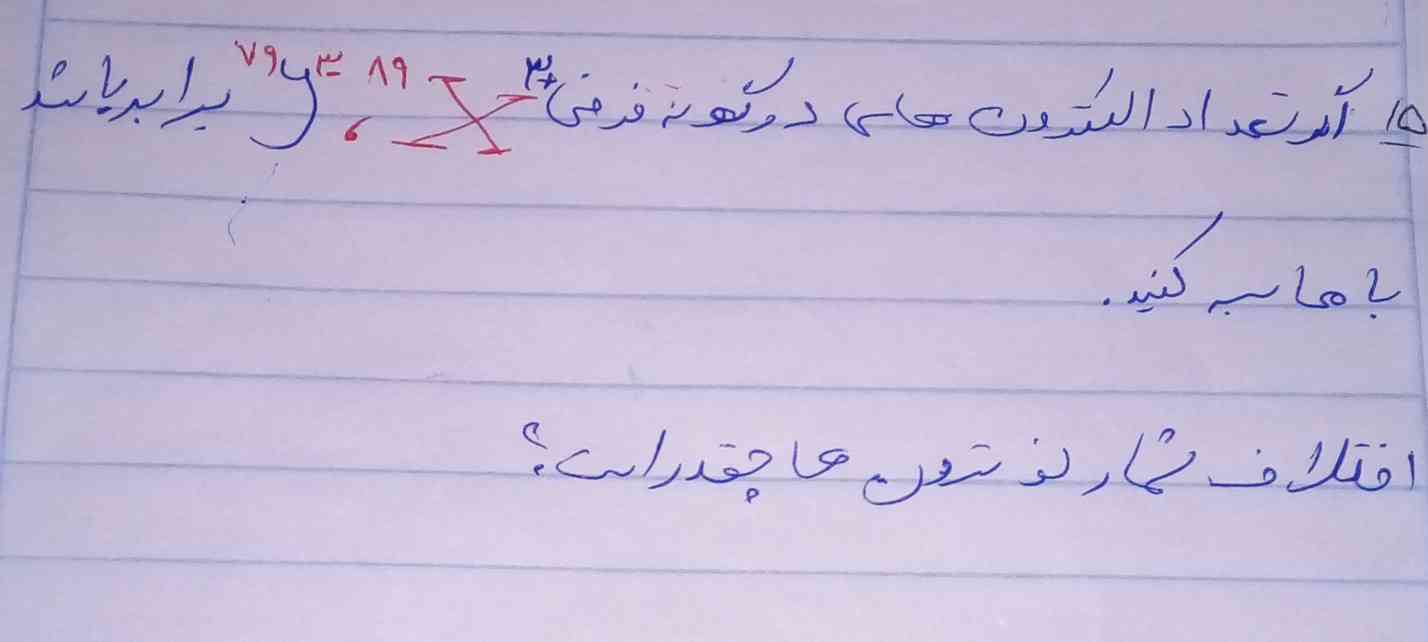 ۱۵ اگر تعداد الکترون های دو گونه فرضی ۸۹X۳+ ، ۷۹y۳- برابر باشد
با محاسبه کنید.
اختلاف شمار نوترون ها چقدر است؟